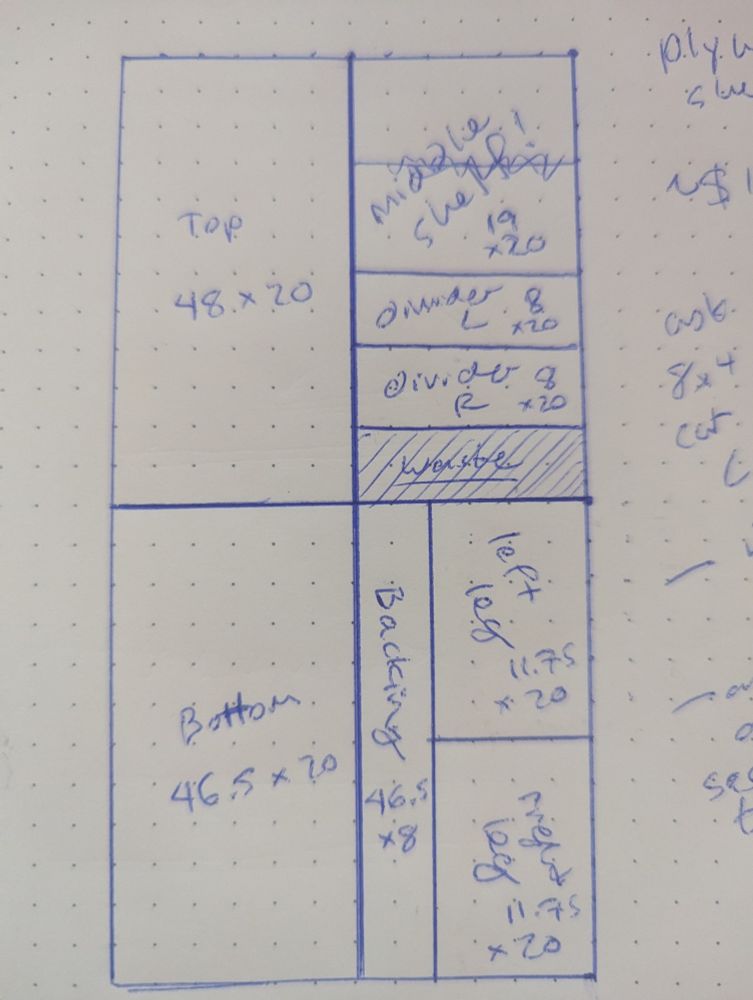 Top
48 x 20
middle
shelf!
19
x20
divider 8
L x20
divider 8
R x20
waste
Bottom
46.5 x 20
Backing
46.5
x8
left
leg
11.75
x 20
right
leg
11.75
x 20
ask
8x4
cut